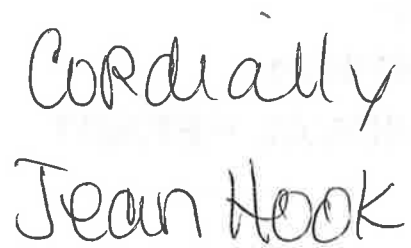 Cordially
Jean Hook